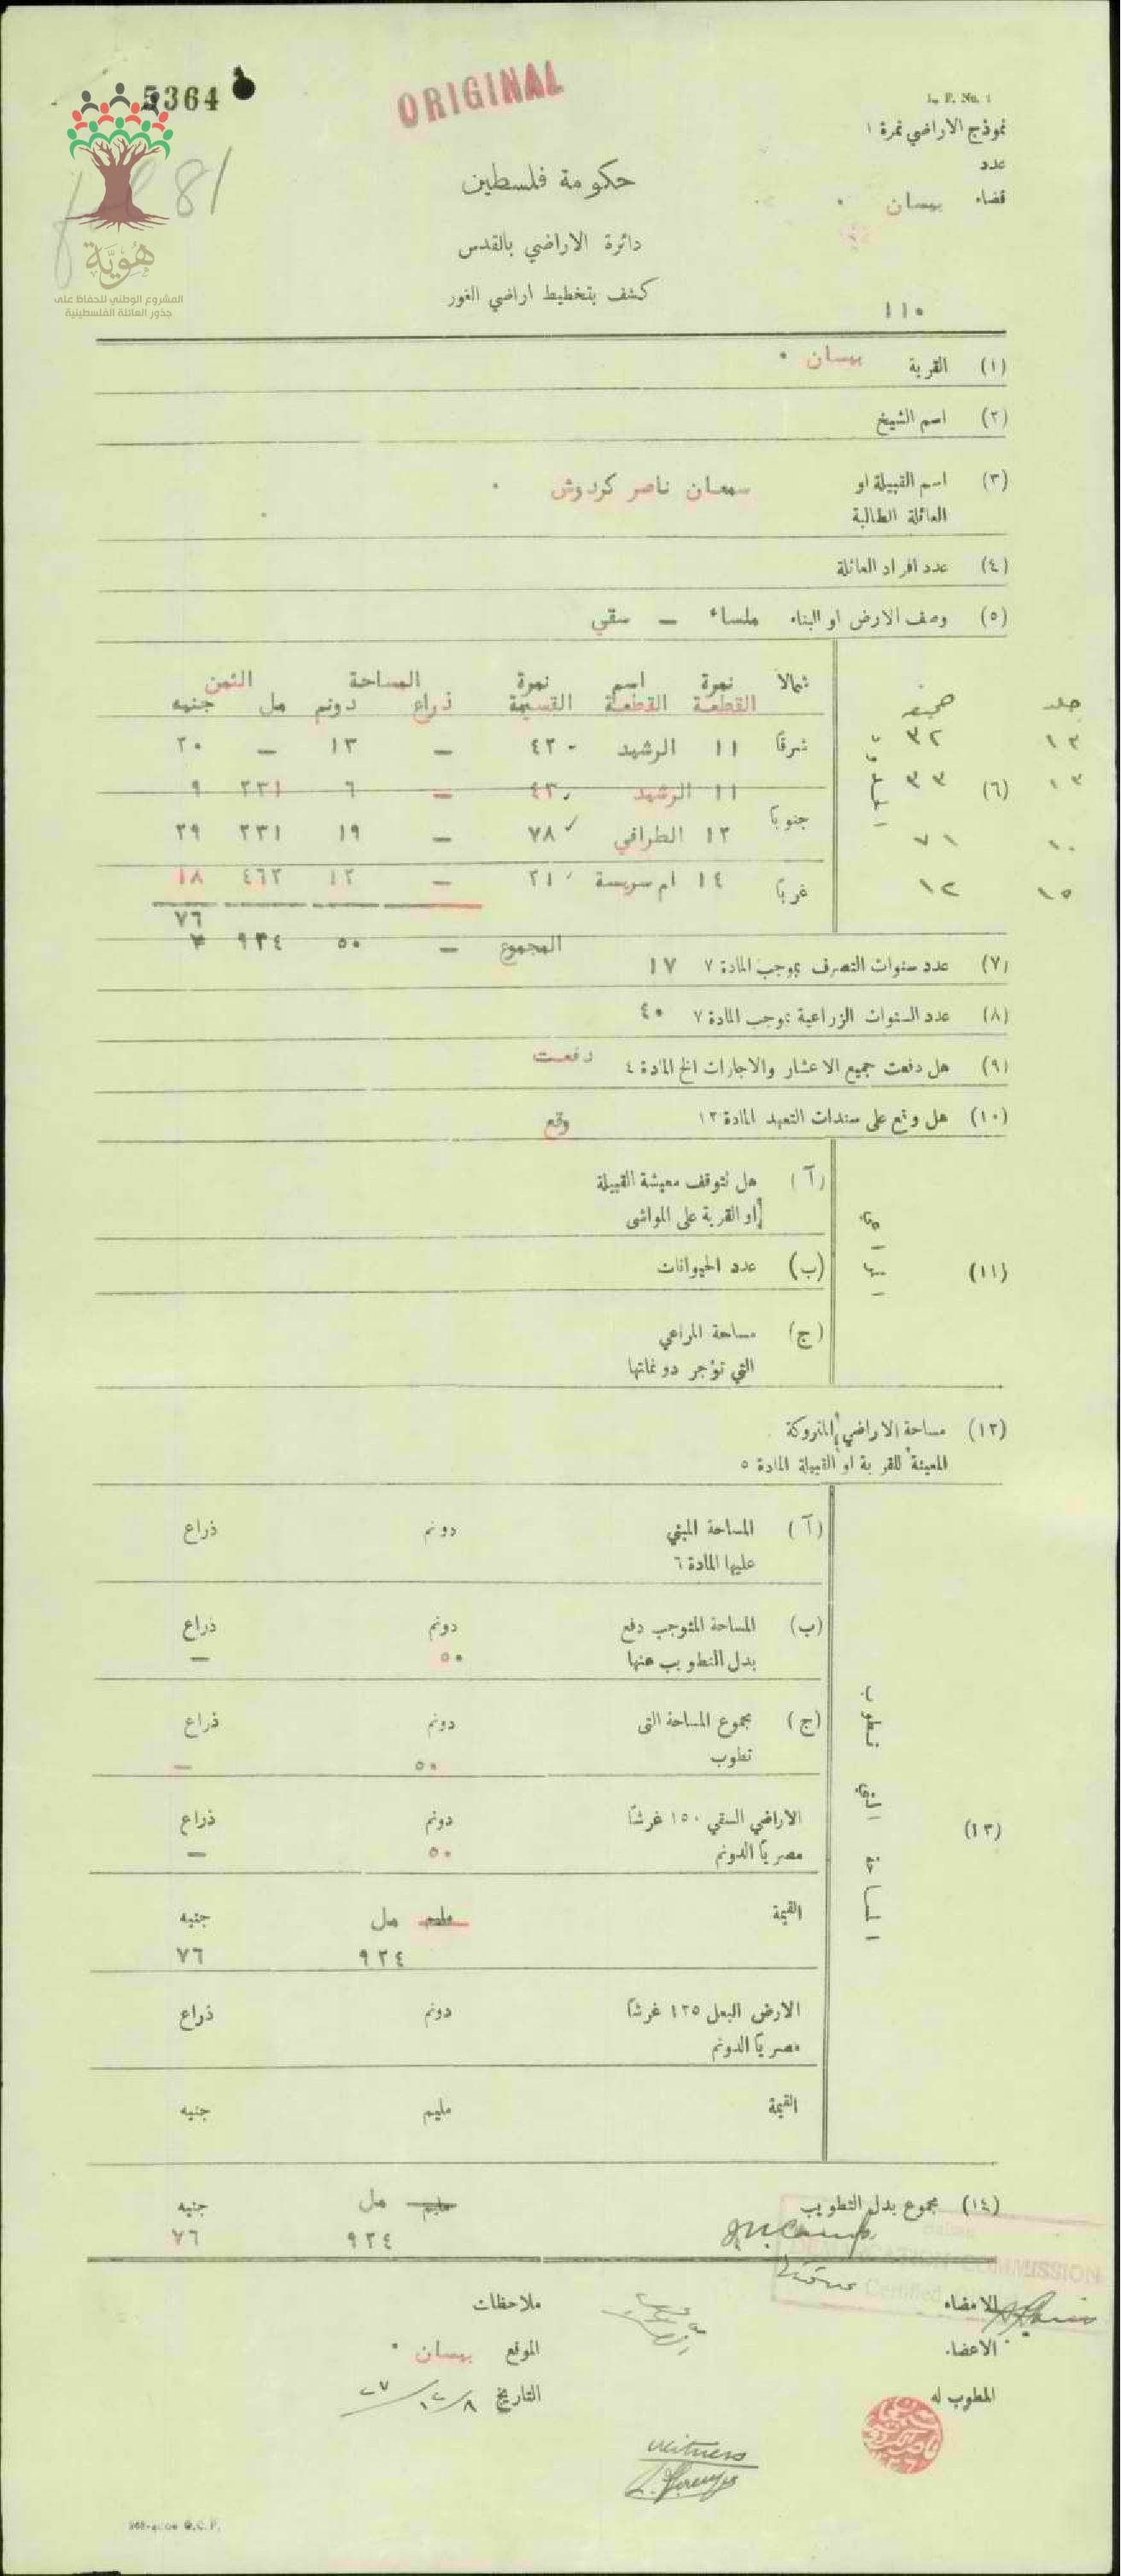 5364
ORIGINAL
L. P. No. 1
نموذج الاراضي نمرة ١
عدد
قضاء بيسان
81
حكومة فلسطين
دائرة الاراضي بالقدس
كشف بتخطيط اراضي الغور
هُوِيَّة
المشروع الوطني للحفاظ على
جذور العائلة الفلسطينية
١١٠
(١) القرية بيسان
(٢) اسم الشيخ
(٣) اسم القبيلة او سمعان ناصر كردوش
العائلة الطالبة
(٤) عدد افراد العائلة
(٥) وصف الارض او البناء ملساء — سقي
جلد صحيفة شمالاً نمرة القطعة اسم القطعة نمرة القسيمة المساحة ذراع دونم الثمن مل جنيه
١٢ ٣٢ شرقاً ١١ الرشيد ٤٢٠ — ١٣ — ٢٠
١٣ ٣٣ (٦) الحدود ١١ الرشيد ٤٣ — ٦ ٢٣١ ٩
١٠ ٧١ جنوباً ١٢ الطرافي ٧٨ — ١٩ ٢٣١ ٢٩
١٥ ١٢ غرباً ١٤ ام سريسة ٢١ — ١٢ ٤٦٢ ١٨
٧٦
المجموع — ٥٠ ٩٢٤
(٧) عدد سنوات التصرف بموجب المادة ٧ ١٧
(٨) عدد السنوات الزراعية بموجب المادة ٧ ٤٠
(٩) هل دفعت جميع الاعشار والاجارات الخ المادة ٤ دفعت
(١٠) هل وقع على سندات التعهد المادة ١٢ وقع
(آ) هل تتوقف معيشة القبيلة
او القرية على المواشي
(١١) (ب) عدد الحيوانات
(ج) مساحة المراعي
التي تؤجر دونماتها
(١٢) مساحة الاراضي المتروكة
المعينة للقرية او القبيلة المادة ٥
(آ) المساحة المبني دونم ذراع
عليها المادة ٦
(ب) المساحة المتوجب دفع دونم ذراع
بدل التطويب عنها ٥٠ —
(ج) مجموع المساحة التي دونم ذراع
تطوب ٥٠ —
(١٣) المساحة
الاراضي السقي ١٥٠ غرشاً دونم ذراع
مصرياً الدونم ٥٠ —
القيمة مليم مل جنيه
٩٢٤ ٧٦
الارض البعل ١٢٥ غرشاً دونم ذراع
مصرياً الدونم
القيمة مليم جنيه
(١٤) مجموع بدل التطويب مليم مل جنيه
٩٢٤ ٧٦
DEMARCATION COMMISSION
Certified
الامضاء ملاحظات
الاعضاء الموقع بيسان
المطوب له التاريخ ٨/١٢/٢٧
witness